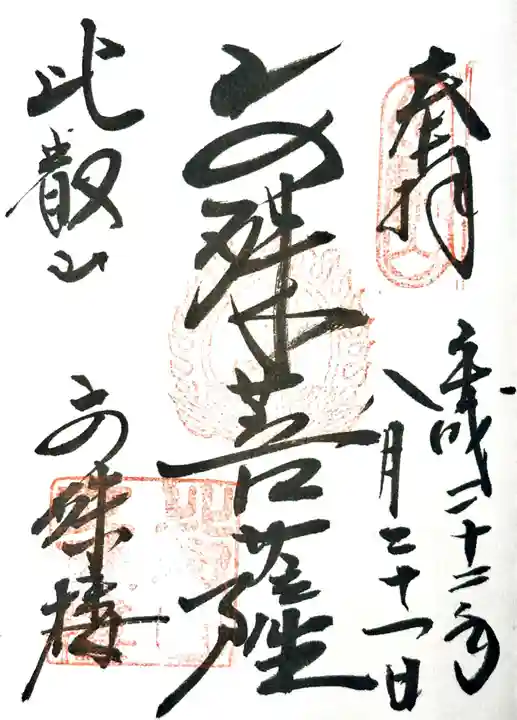 奉拝
平成二十二年
八月二十一日
文殊菩薩
比叡山
文殊楼